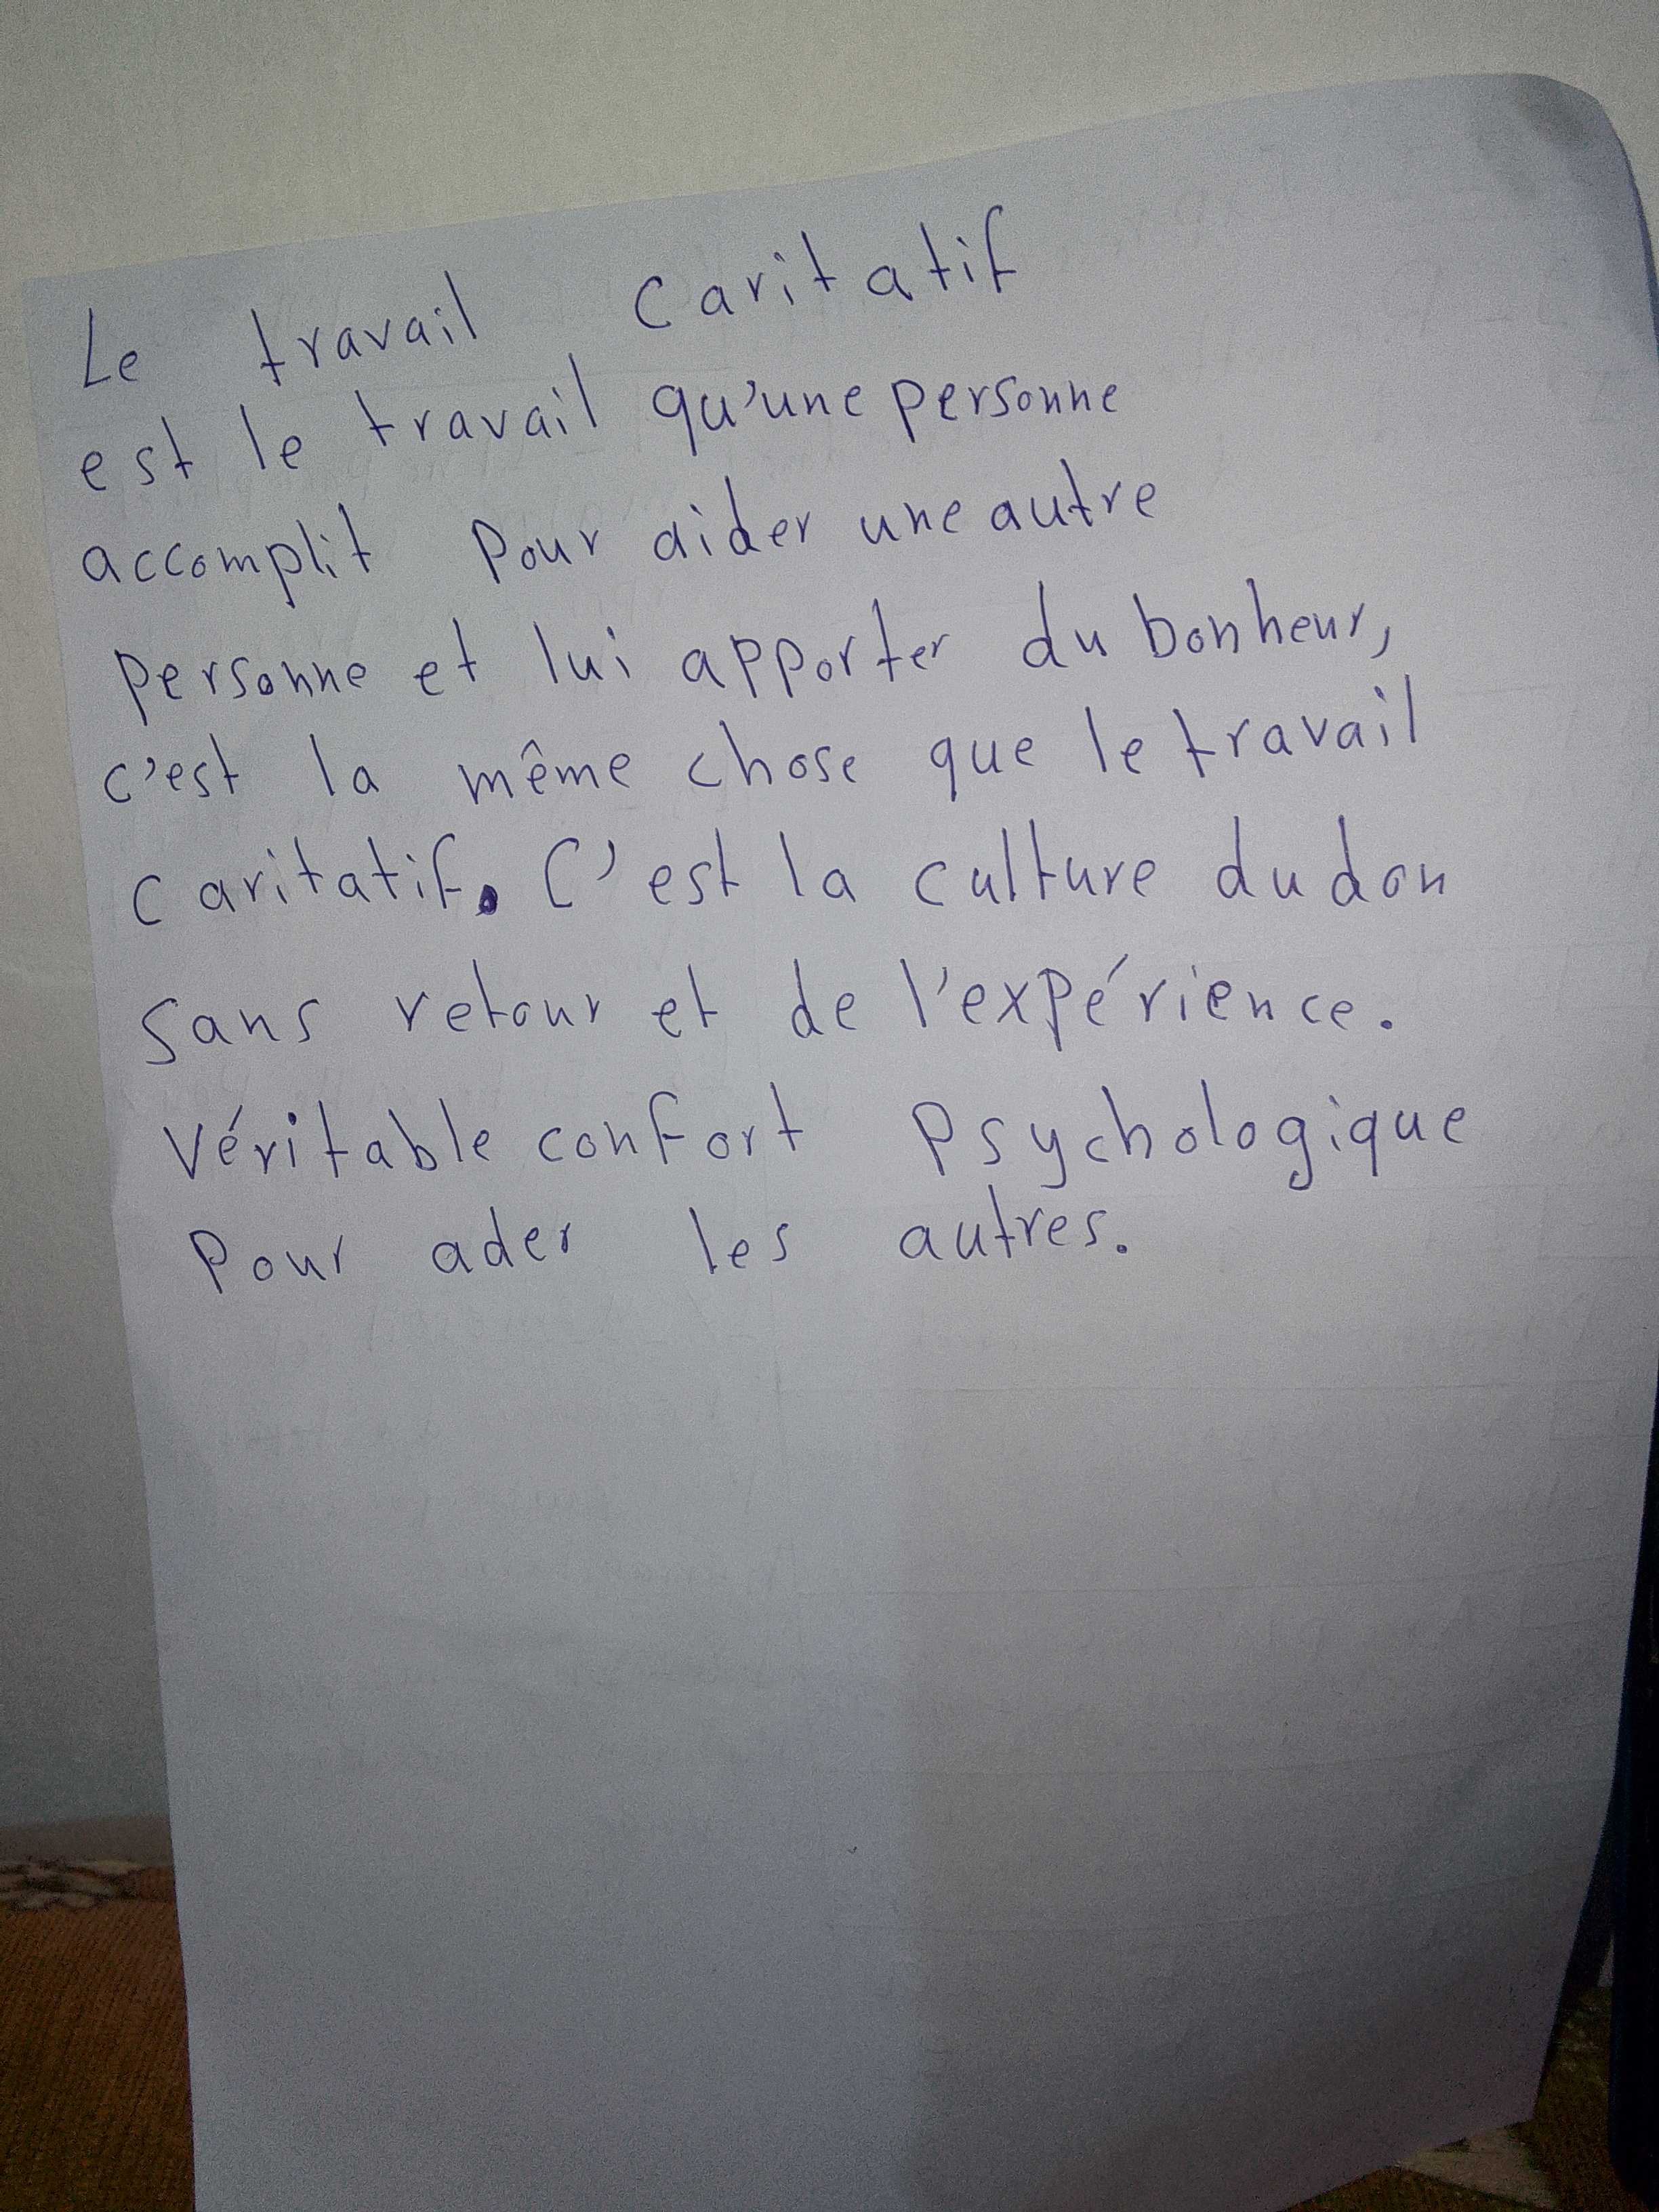 Le travail caritatif
est le travail qu'une personne
accomplit pour aider une autre
personne et lui apporter du bonheur,
c'est la même chose que le travail
caritatif. C'est la culture du don
sans retour et de l'expérience.
véritable confort psychologique
pour ader les autres.